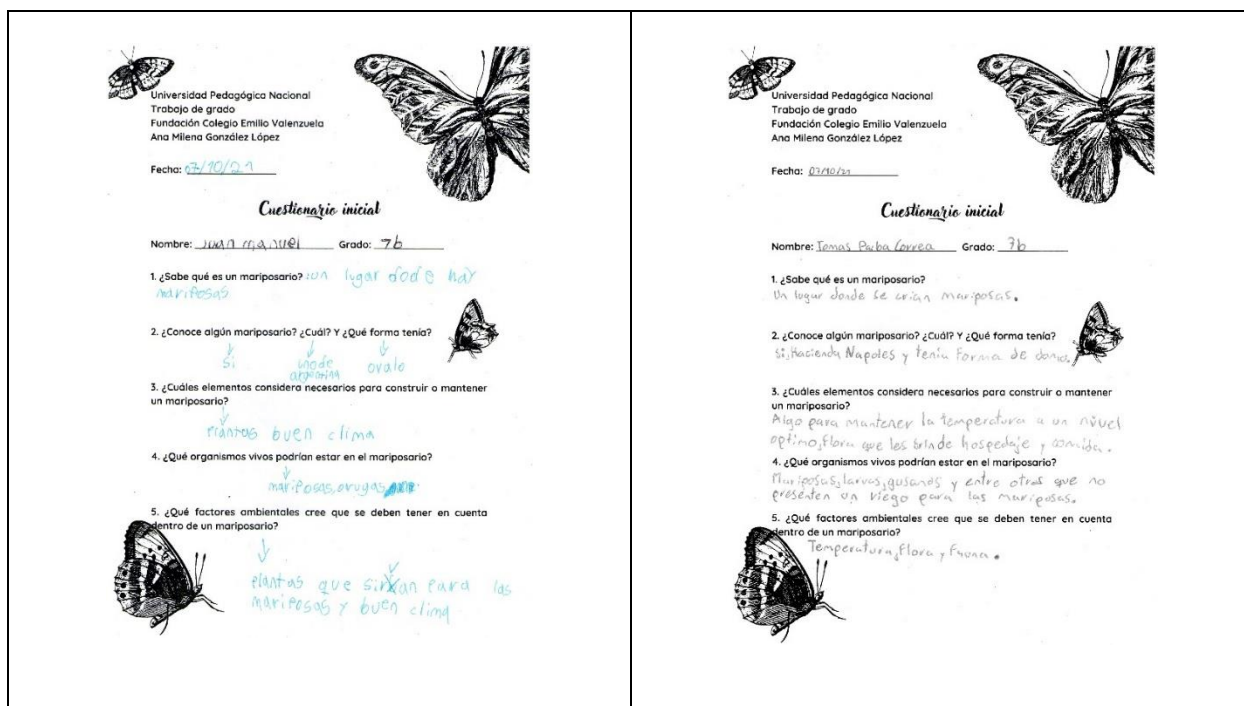 Universidad Pedagógica Nacional
Trabajo de grado
Fundación Colegio Emilio Valenzuela
Ana Milena González López
Fecha: 07/10/21
Cuestionario inicial
Nombre: Juan manuel Grado: 7b
1. ¿Sabe qué es un mariposario? un lugar dode hay
mariposas
2. ¿Conoce algún mariposario? ¿Cuál? Y ¿Qué forma tenía?
Si unode ovalo
argentina
3. ¿Cuáles elementos considera necesarios para construir o mantener
un mariposario?
plantas buen clima
4. ¿Qué organismos vivos podrían estar en el mariposario?
mariposas, orugas
5. ¿Qué factores ambientales cree que se deben tener en cuenta
dentro de un mariposario?
plantas que sirvan para las
mariposas y buen clima
Universidad Pedagógica Nacional
Trabajo de grado
Fundación Colegio Emilio Valenzuela
Ana Milena González López
Fecha: 07/10/21
Cuestionario inicial
Nombre: Tomas Correa Grado: 7b
1. ¿Sabe qué es un mariposario?
Un lugar donde se crian mariposas.
2. ¿Conoce algún mariposario? ¿Cuál? Y ¿Qué forma tenía?
Si, Hacienda Napoles y tenía forma de domo.
3. ¿Cuáles elementos considera necesarios para construir o mantener
un mariposario?
Algo para mantener la temperatura a un nivel
optimo, flora que les brinde hospedaje y comida.
4. ¿Qué organismos vivos podrían estar en el mariposario?
Mariposas, larvas, gusanos y entre otros que no
presenten un riego para las mariposas.
5. ¿Qué factores ambientales cree que se deben tener en cuenta
dentro de un mariposario?
Temperatura, flora y fauna.